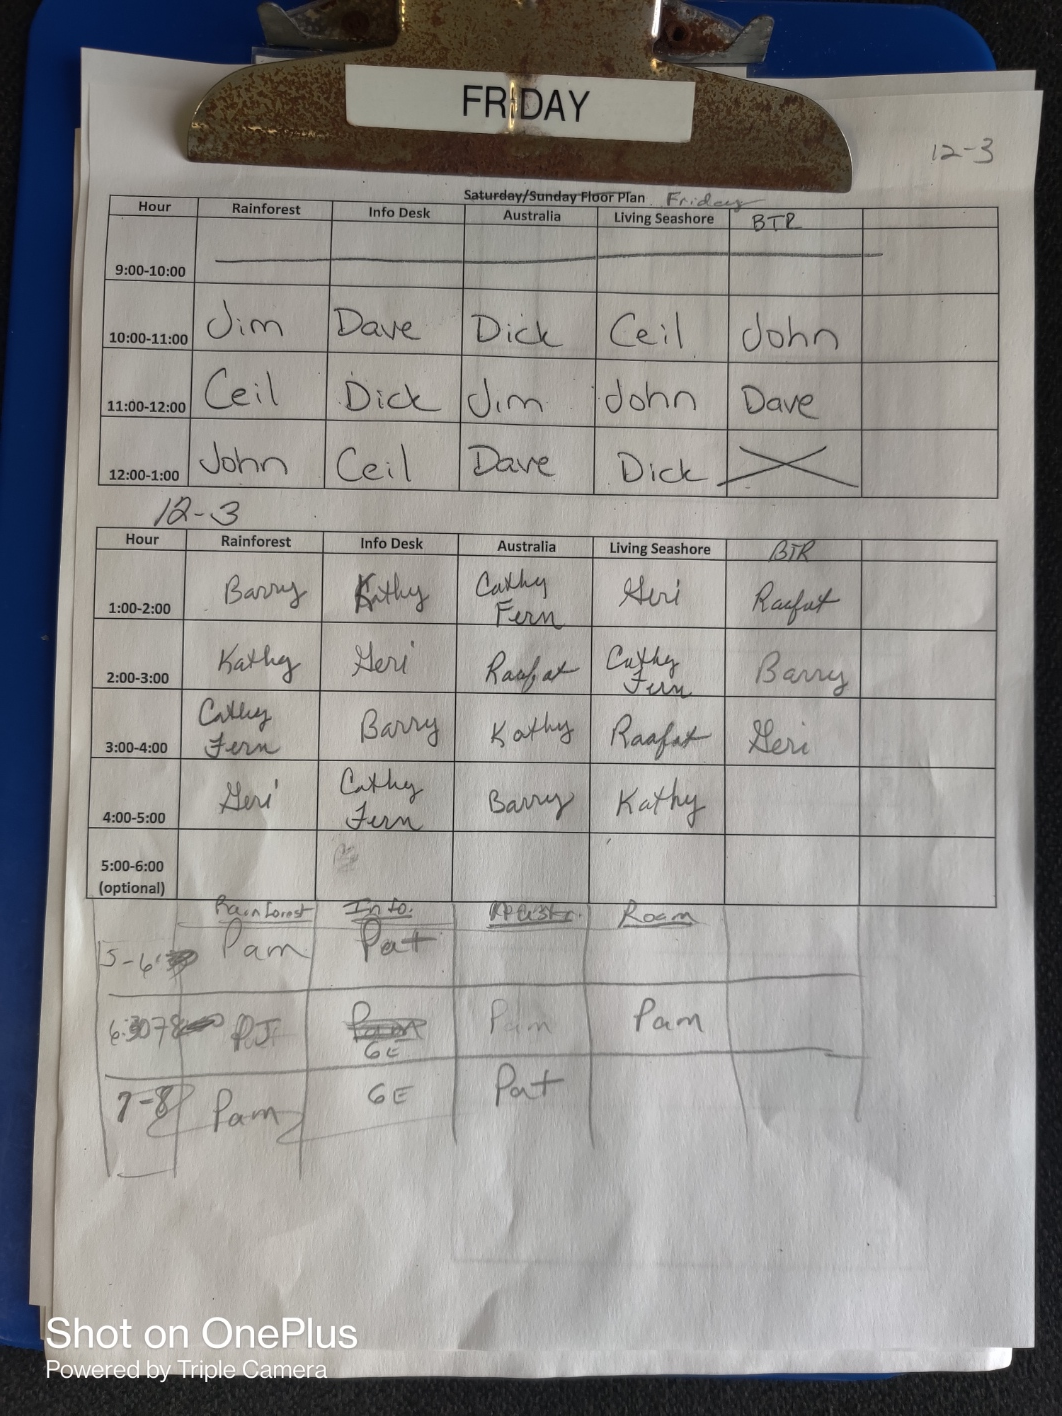 FRIDAY
12-3
Saturday/Sunday Floor Plan Friday
Hour Rainforest Info Desk Australia Living Seashore BTR
9:00-10:00
10:00-11:00 Jim Dave Dick Ceil John
11:00-12:00 Ceil Dick Jim John Dave
12:00-1:00 John Ceil Dave Dick
12-3
Hour Rainforest Info Desk Australia Living Seashore BTR
1:00-2:00 Barry Kathy Cathy Fern Geri Raafat
2:00-3:00 Kathy Geri Raafat Cathy Fern Barry
3:00-4:00 Cathy Fern Barry Kathy Raafat Geri
4:00-5:00 Geri Cathy Fern Barry Kathy
5:00-6:00
(optional)
Rainforest Info. Roam
5-6 Pam Pat
PJ Pam Pam Pam
GE
7-8 Pam GE Pat
Shot on OnePlus
Powered by Triple Camera